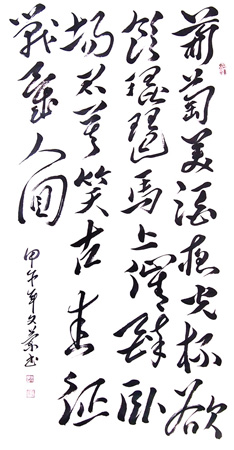 葡萄美酒夜光杯欲
飲琵琶馬上催醉臥
場君莫笑古来征
戰幾人回
甲午年